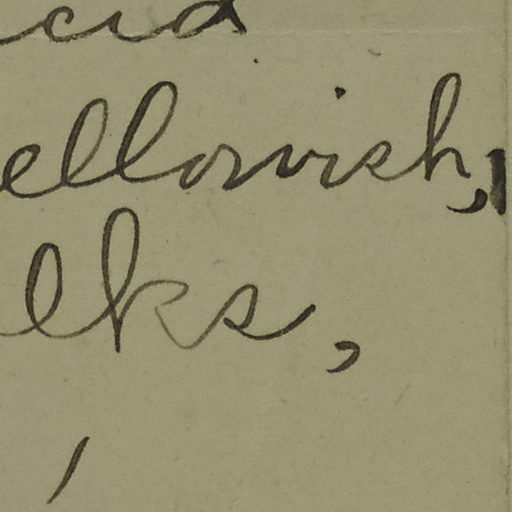 cid
ellowish,
lks,